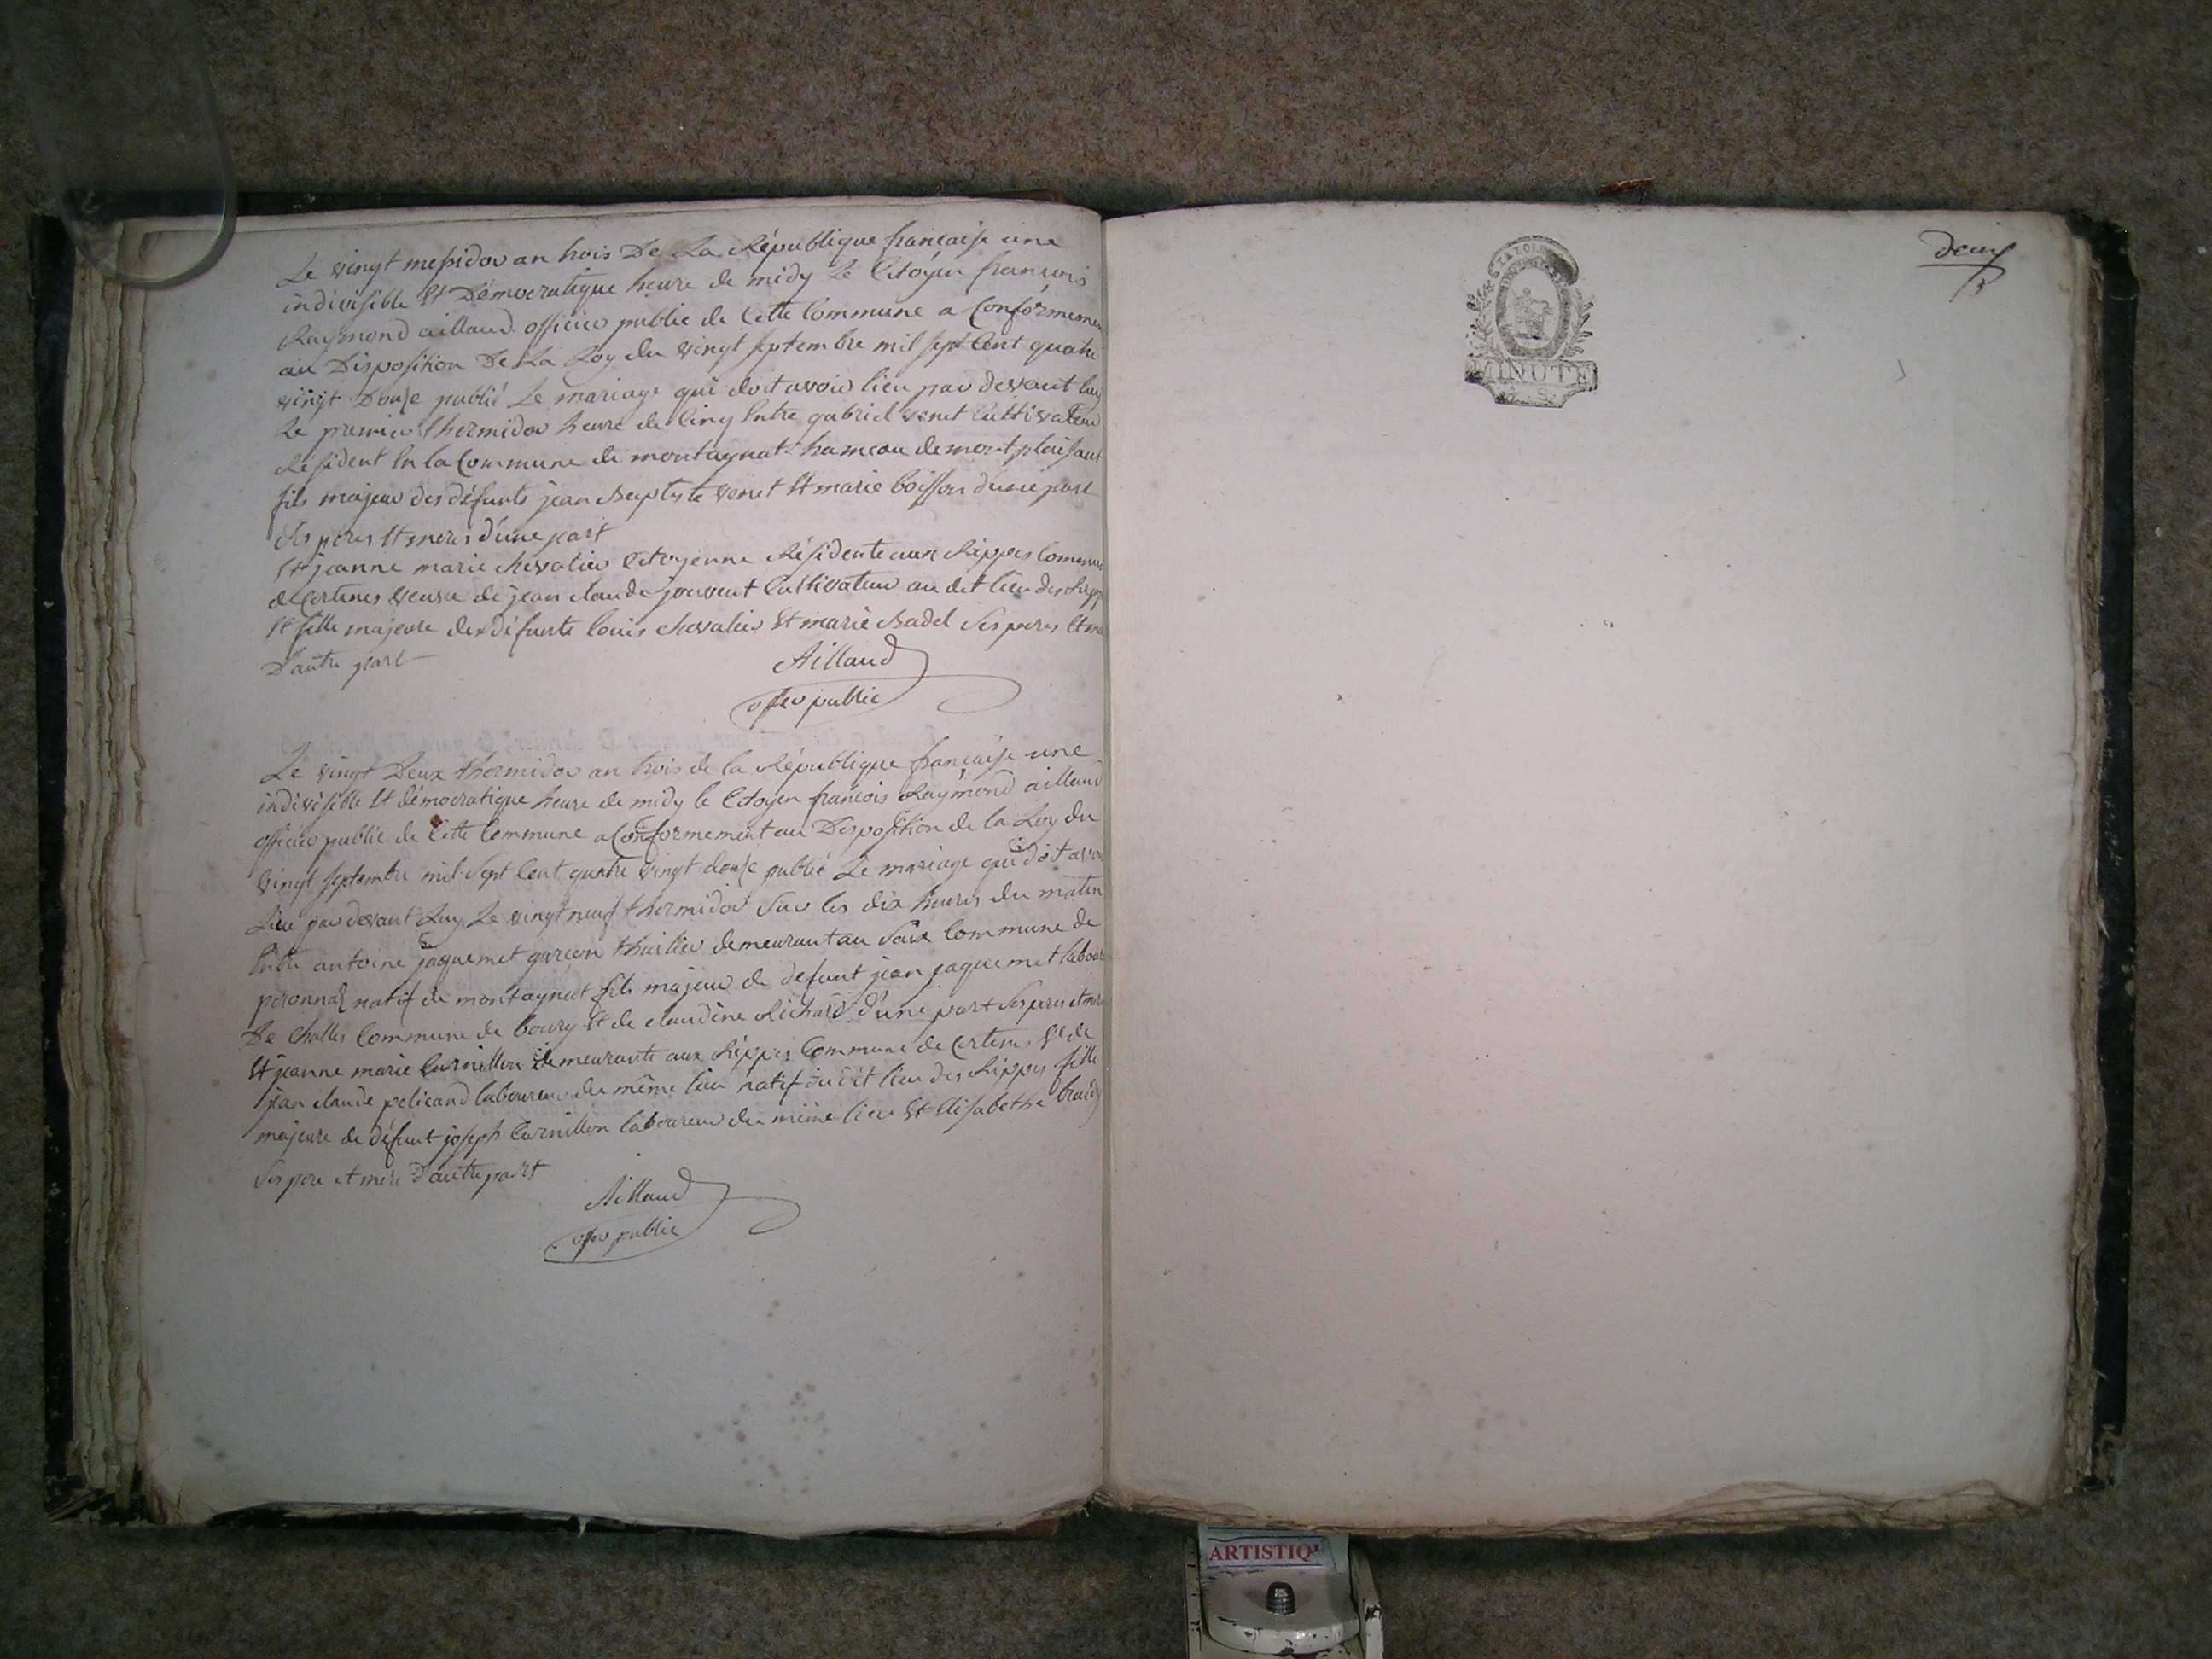 Le vingt messidor an trois De La République française une
indivisible Et Démocratique heure de midy Le Citoyen françois
Raymond aillaud officier public de Cette Commune a Conformemen
au Disposition De La Loy du vingt septembre mil sept Cent quatre
vingt Douze publié Le mariage qui doit avoir lieu par devant luy
Le premier thermidor heure de Cinq Entre gabriel venet Cultivateur
Résident En la Commune de montagnat hameau de montplaisant
fils majeur des défunts jean Baptiste venet Et marie boisson d'une part
ses peres Et meres d'une part
Et jeanne marie chevalier Citoyenne Résidente aux Rippes Commune
de Certines veuve de jean claude jouvent Cultivateur au dit lieu des Ripp
Et fille majeure des défunts louis chevalier Et marie Badel Ses peres Et me
D'autre part
Aillaud
offer public
Le vingt Deux thermidor an trois de la République française une
indivisible Et démocratique heure de midy le Citoyen francois Raymond aillaud
officier public de Cette Commune a Conformement au Disposition de la Loy du
vingt septembre mil Sept Cent quatre vingt douze publié Le mariage qui doit avoir
Lieu par devant Luy Le vingt neuf thermidor Sur les dix heures du matin
Entre antoine jaquemet garçon thuilier demeurant au Saix Commune de
peronnaz natif de montagnat fils majeur de défunt jean jaquemet labour
De Challes Commune de bourg Et de claudine Richard d'une part Ses peres et mer
Et jeanne marie Curnillon demeurante aux Rippes Commune de Certines Ve de
jean claude pelicand laboureur du même lieu natif du dit lieu des Rippes fille
majeure de défunt joseph Curnillon laboureur du même lieu Et Elisabethe
Ses pere et mere D'autre part
Aillaud
offer public
deux
MINUTE